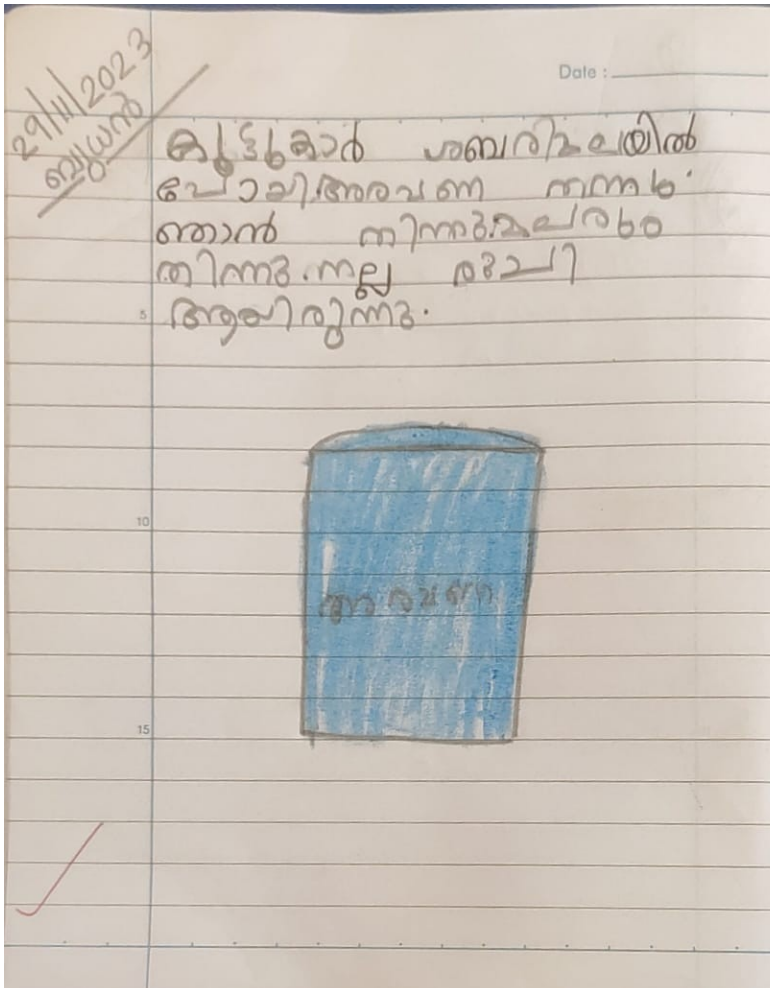 29/11/2023
ബുധൻ
Date :
കൂട്ടുകാർ ശബരിമലയിൽ
പോയി.അരവണ തന്നു.
ഞാൻ തിന്നു.മലരും
തിന്നു.നല്ല രുചി
ആയിരുന്നു.
5
10
അരവണ
15